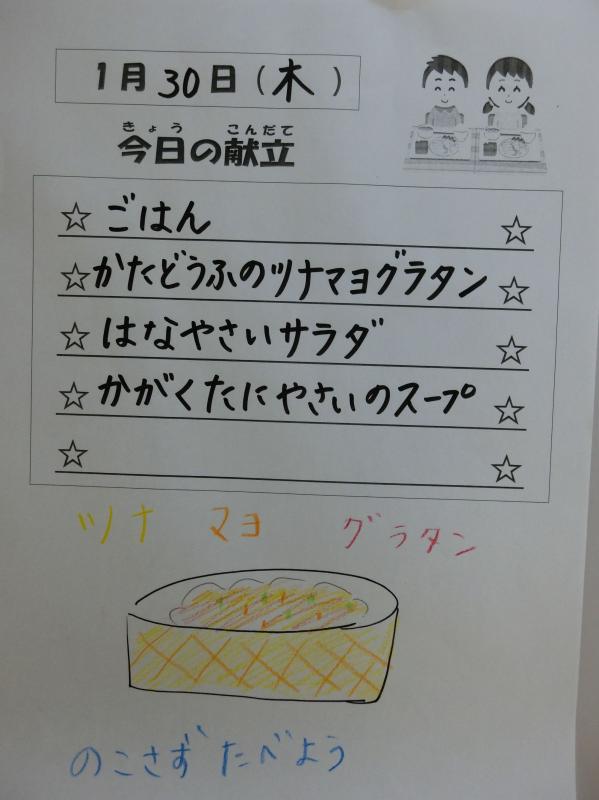 1月30日(木)
きょう こんだて
今日の献立
☆ ごはん ☆
☆ かたどうふのツナマヨグラタン ☆
☆ はなやさいサラダ ☆
☆ かがくたにやさいのスープ ☆
☆ ☆
ツナ マヨ グラタン
のこさずたべよう